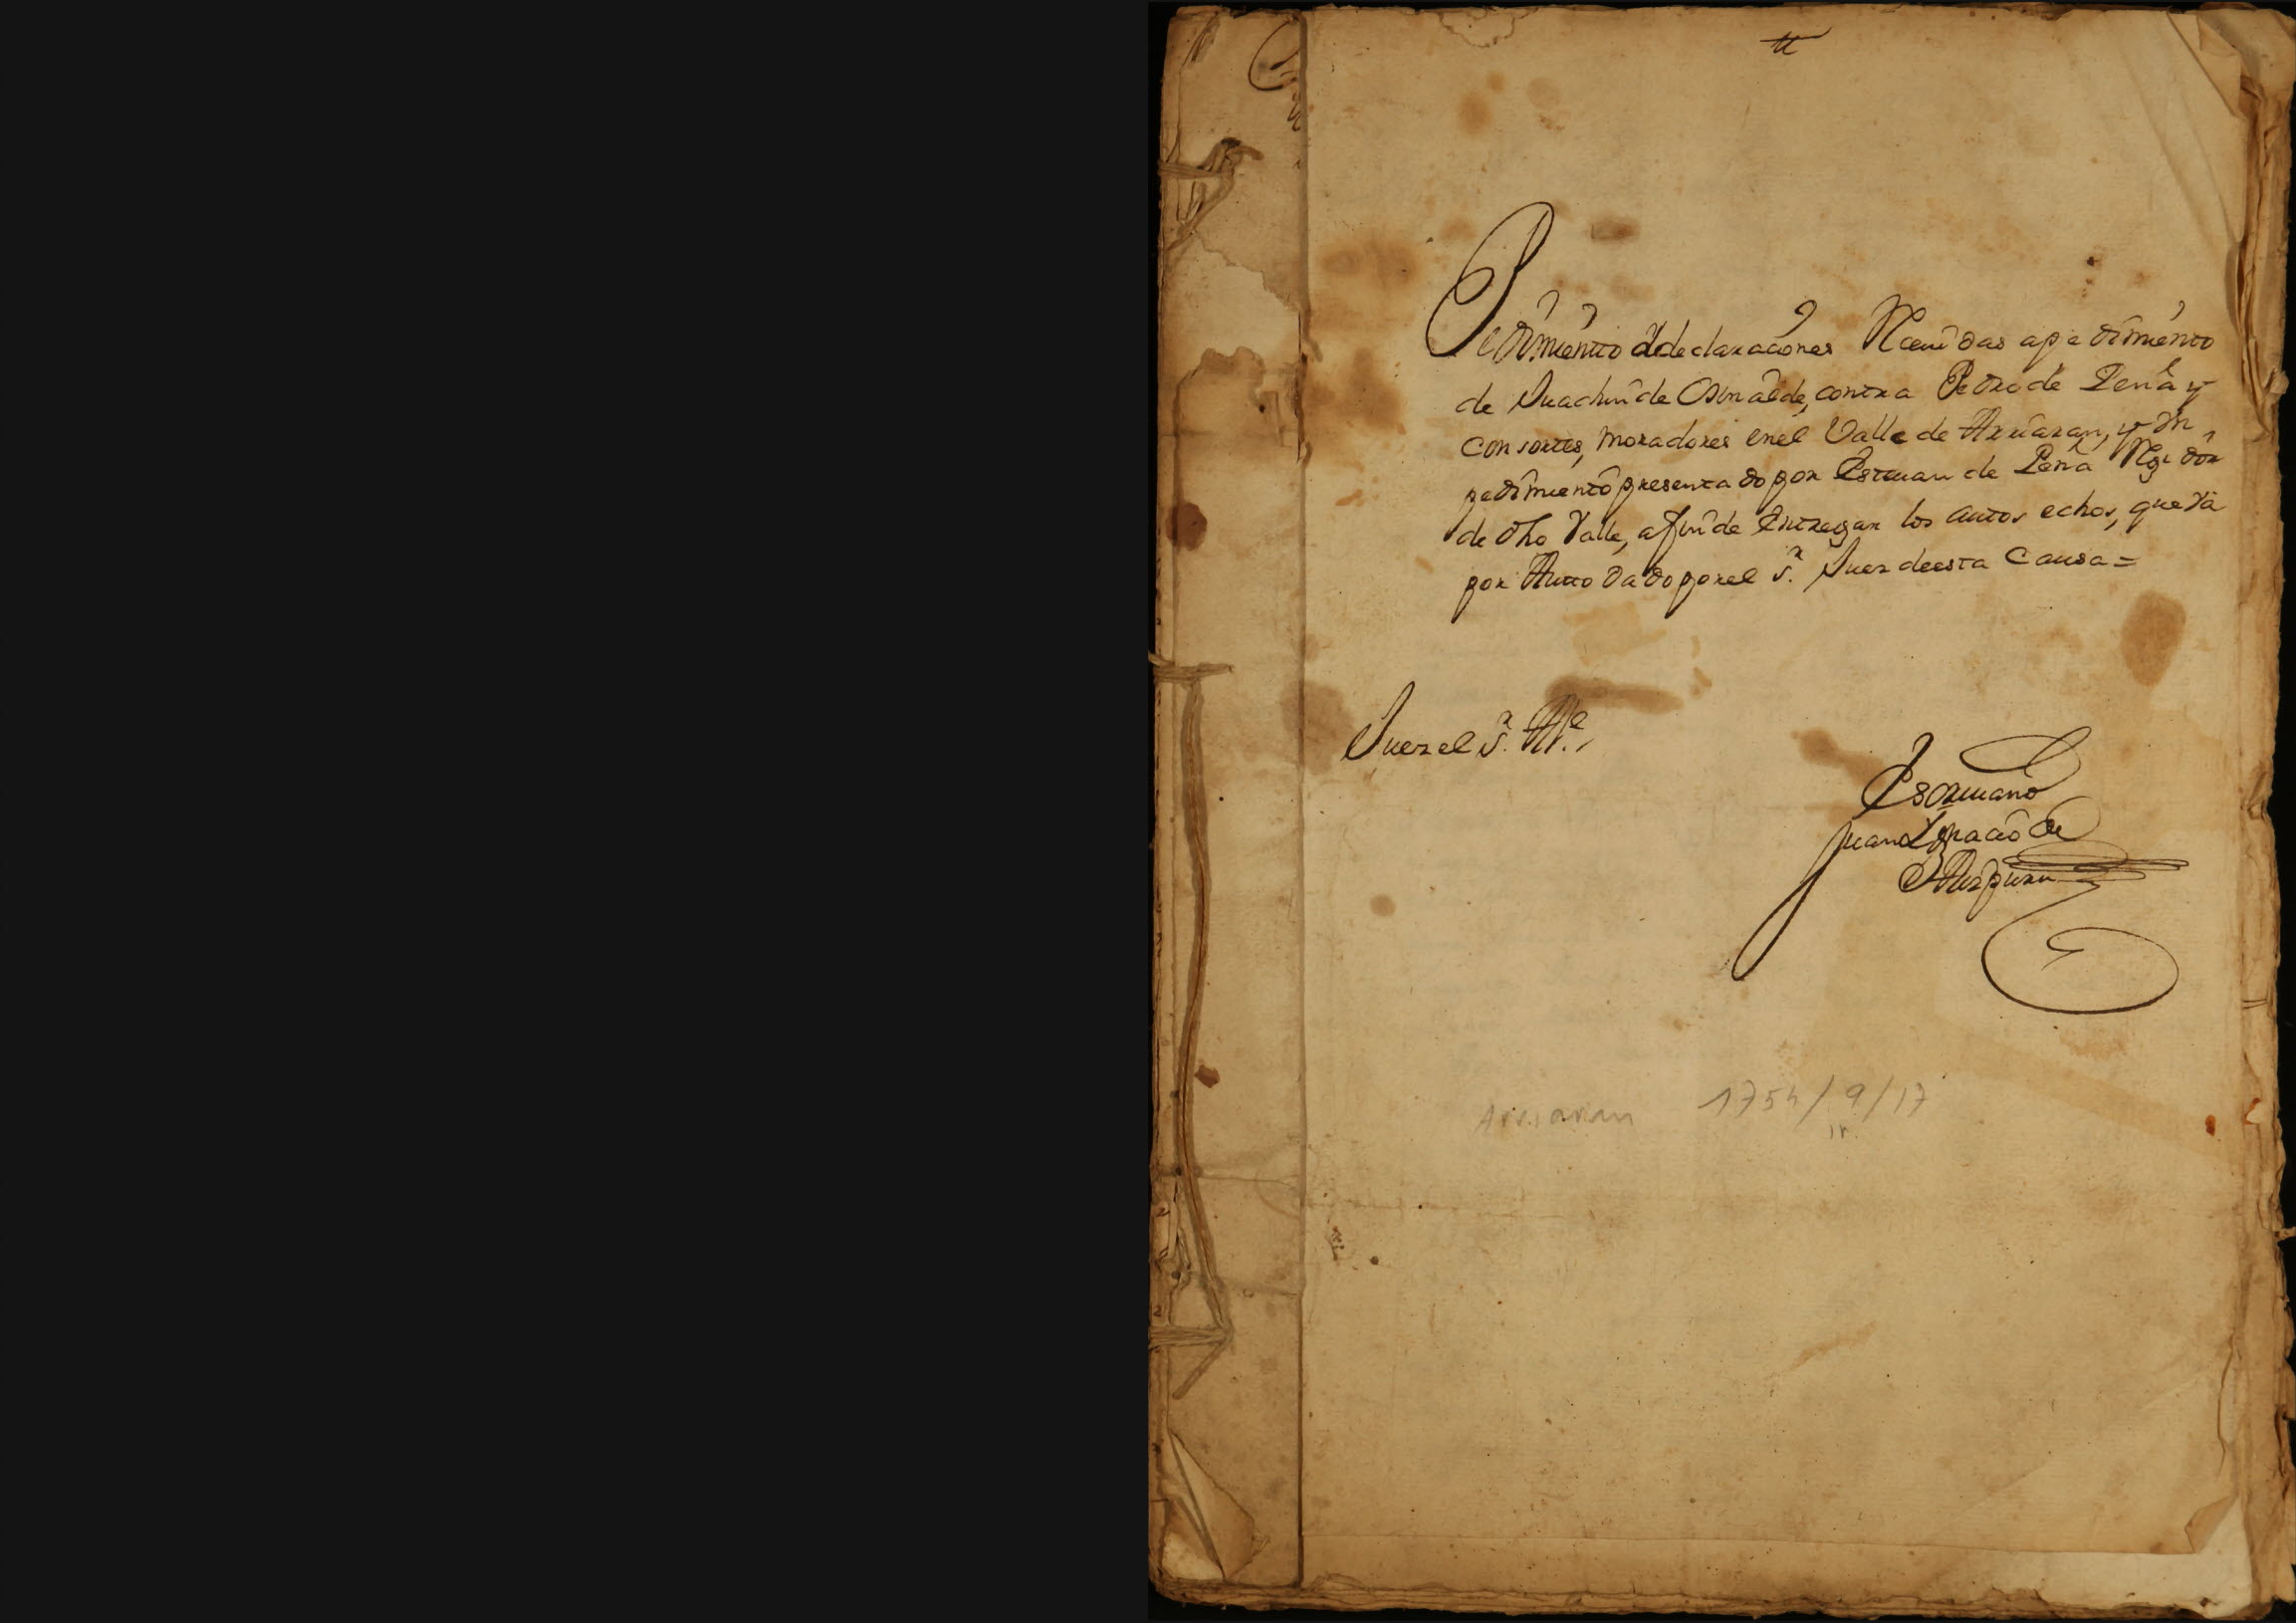 Pedimiento y declaraciones Receuidas a pedimiento
de Juachin de Osinalde, contra Pedro de Peña y
consortes, moradores en el Valle de Arriaran, y Un
pedimiento presentado por Esteuan de Peña Regidor
de dho Valle, a fin de Entregar los autos echos, que va
por Auto dado por el S.r Juez de esta Causa =
Juez el S.r Al.e
Escriuano
Juan Ygnacio de
Aizpuru
Arriaran 1754/9/17